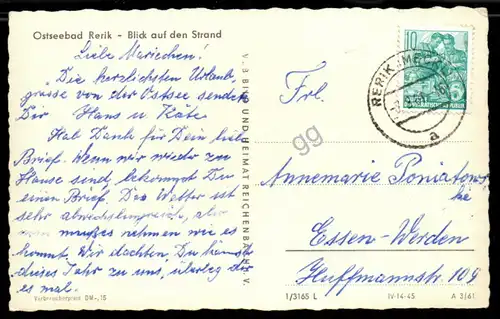 Ostseebad Rerik - Blick auf den Strand
Liebe Mariechen!
Die herzlichsten Urlaub-
grüsse von der Ostsee senden
Dir Hans u. Käte.
Hab Dank für Dein lieb
Brief. Wenn wir wieder zu
Hause sind, bekommst Du
einen Brief. Das Wetter ist
sehr abwechslungsreich, aber
man muß es nehmen wie es
kommt. Wir dachten, Du kämst
dieses Jahr zu uns, überleg dir
es mal.
Verbraucherpreis DM -,15
V. B BILD UND HEIMAT REICHENBACH I. V.
gg
10
RERIK
a
Frl.
Annemarie Poniatows-
ke
Essen-Werden
Huffmannstr. 109
1/3165 L
IV-14-45
A 3/61